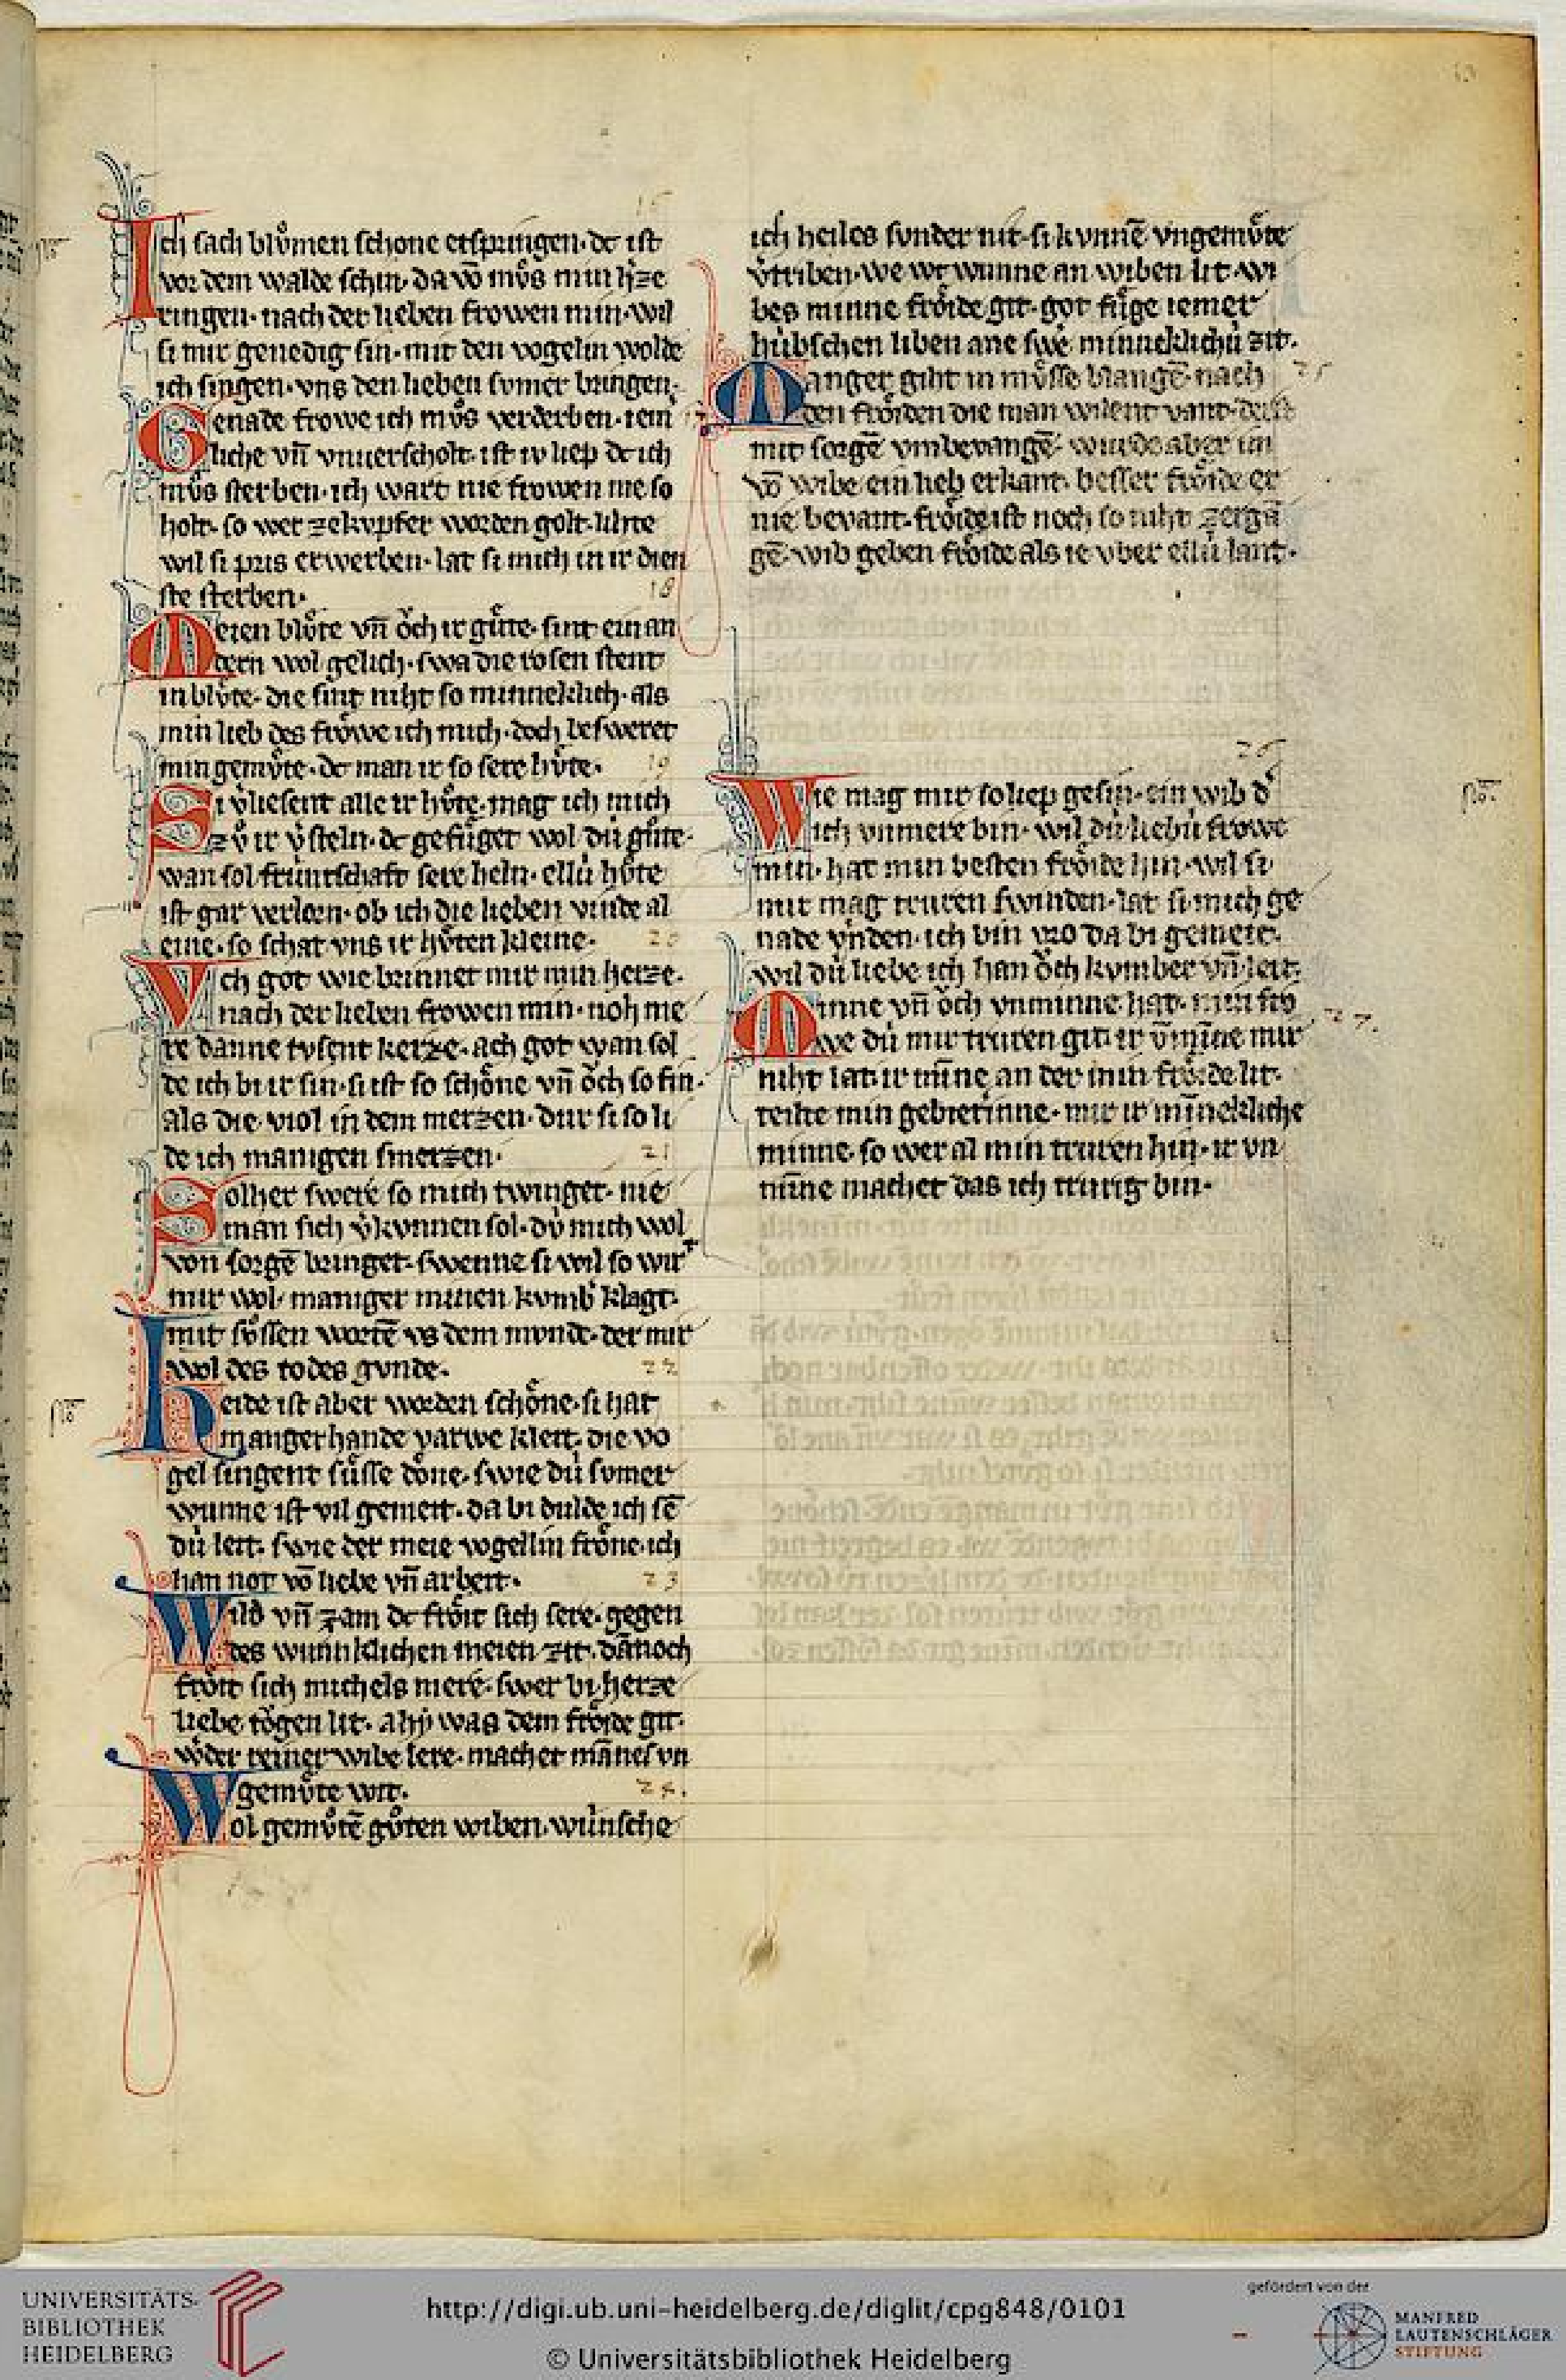 16
Ich sach blůmen schone entspringen· dc ist
vor dem walde schin· da vō můs min h̄ze
ringen· nach der lieben frowen min· wil
si mir genedig sin· mit den vogelin wolde
ich singen· vns den lieben svmer bringen·
Genade frowe ich můs verderben· iem̄
liche vn̄ vnuerscholt· ist iv liep dc ich
můs sterben· ich wart nie frowen nie so
holt· so wer ze kvpfer worden golt·
wil si pris erwerben· lat si mich in ir dien
ste sterben·
18
Meien blůte vn̄ ǒch ir gůte· sint ein an
dern wol gelich· swa die rosen stent
in blůte· die sint niht so minneklich· als
min lieb des frǒwe ich mich· doch besweret
min gemůte· dc man ir so sere hůte·
19
Si v̄liesent alle ir hůte· mag ich mich
zů ir v̄steln· dc gefůget wol dú gůte·
wan sol frúntschaft sere heln· ellú hůte
ist gar verlorn· ob ich die lieben vinde al
eine· so schat vns ir hůten kleine·
20
Ach got wie brinnet mir min herze·
nach der lieben frowen min· noh me
re danne tvsent kerze· ach got wan sol
de ich bi ir sin· si ist so schǒne vn̄ ǒch so fin·
als die viol in dem merzen· dur si so li
de ich manigen smerzen·
21
Solher swere so mich twinget· nie
man sich v̄kvnnen sol· dú mich wol
von sorgē bringet· swenne si wil so wirt
mir wol· maniger minen kvmb̄ klagt·
mit sůssen wortē vs dem mvnde· der mir
wol des todes gvnde·
22
Heide ist aber worden schǒne· si hat
mangerhande varwe kleit· die vo
gel singent sůsse dǒne· swie dú svmer
wunne ist vil gemeit· da bi dulde ich sē
dú leit· swie der meie vogellin frǒne· ich
han not vō liebe vn̄ arbeit·
23
Wild vn̄ zam dc frǒit sich sere· gegen
des wunnklichen meien zit· dānoch
frǒit sich michels mere· swer bi herze
liebe tǒgen lit· ahy was dem frǒide git·
w̄der reiner wibe lere· machet mānes vn
gemůte wit·
24·
Wol gemůtē gůten wiben· wúnsche
ich heiles svnder nit· si kvnnē vngemůte
v̄triben· we wc wunne an wiben lit· wi
bes minne frǒide git· got fůge iemer
húbschen liben ane swē minneklichú zit·
25
Manger giht in můsse blangē· nach
den frǒiden die man wilent vant·
mit sorgē vmbevangē· wurde aber im
vō wibe ein lieb erkant· besser frǒide er
nie bevant· frǒide ist noch so niht zergā
gē· wib geben frǒide als ie vber ellú lant·
26
Wie mag mir so liep gesin· ein wib d̄
ich vnmere bin· wil dú liebú frowe
min· hat min besten frǒide hin· wil si
mir mag truren swinden· lat si mich ge
nade v̄nden· ich bin vro da bi gemeit·
wil dú liebe ich han ǒch kvmber vn̄ leit·
27·
Minne vn̄ ǒch vnminne hat· min frǒ
we dú mir truren git· ir v̄mīne mir
niht lat· ir mīne an der min frǒide lit·
teilte min gebieterinne· mir ir mīnekliche
minne· so wer al min truren hin· ir vn
mīne machet das ich trurig bin·
UNIVERSITÄTS-
BIBLIOTHEK
HEIDELBERG
http://digi.ub.uni-heidelberg.de/diglit/cpg848/0101
© Universitätsbibliothek Heidelberg
gefördert von der
MANFRED
LAUTENSCHLÄGER
STIFTUNG